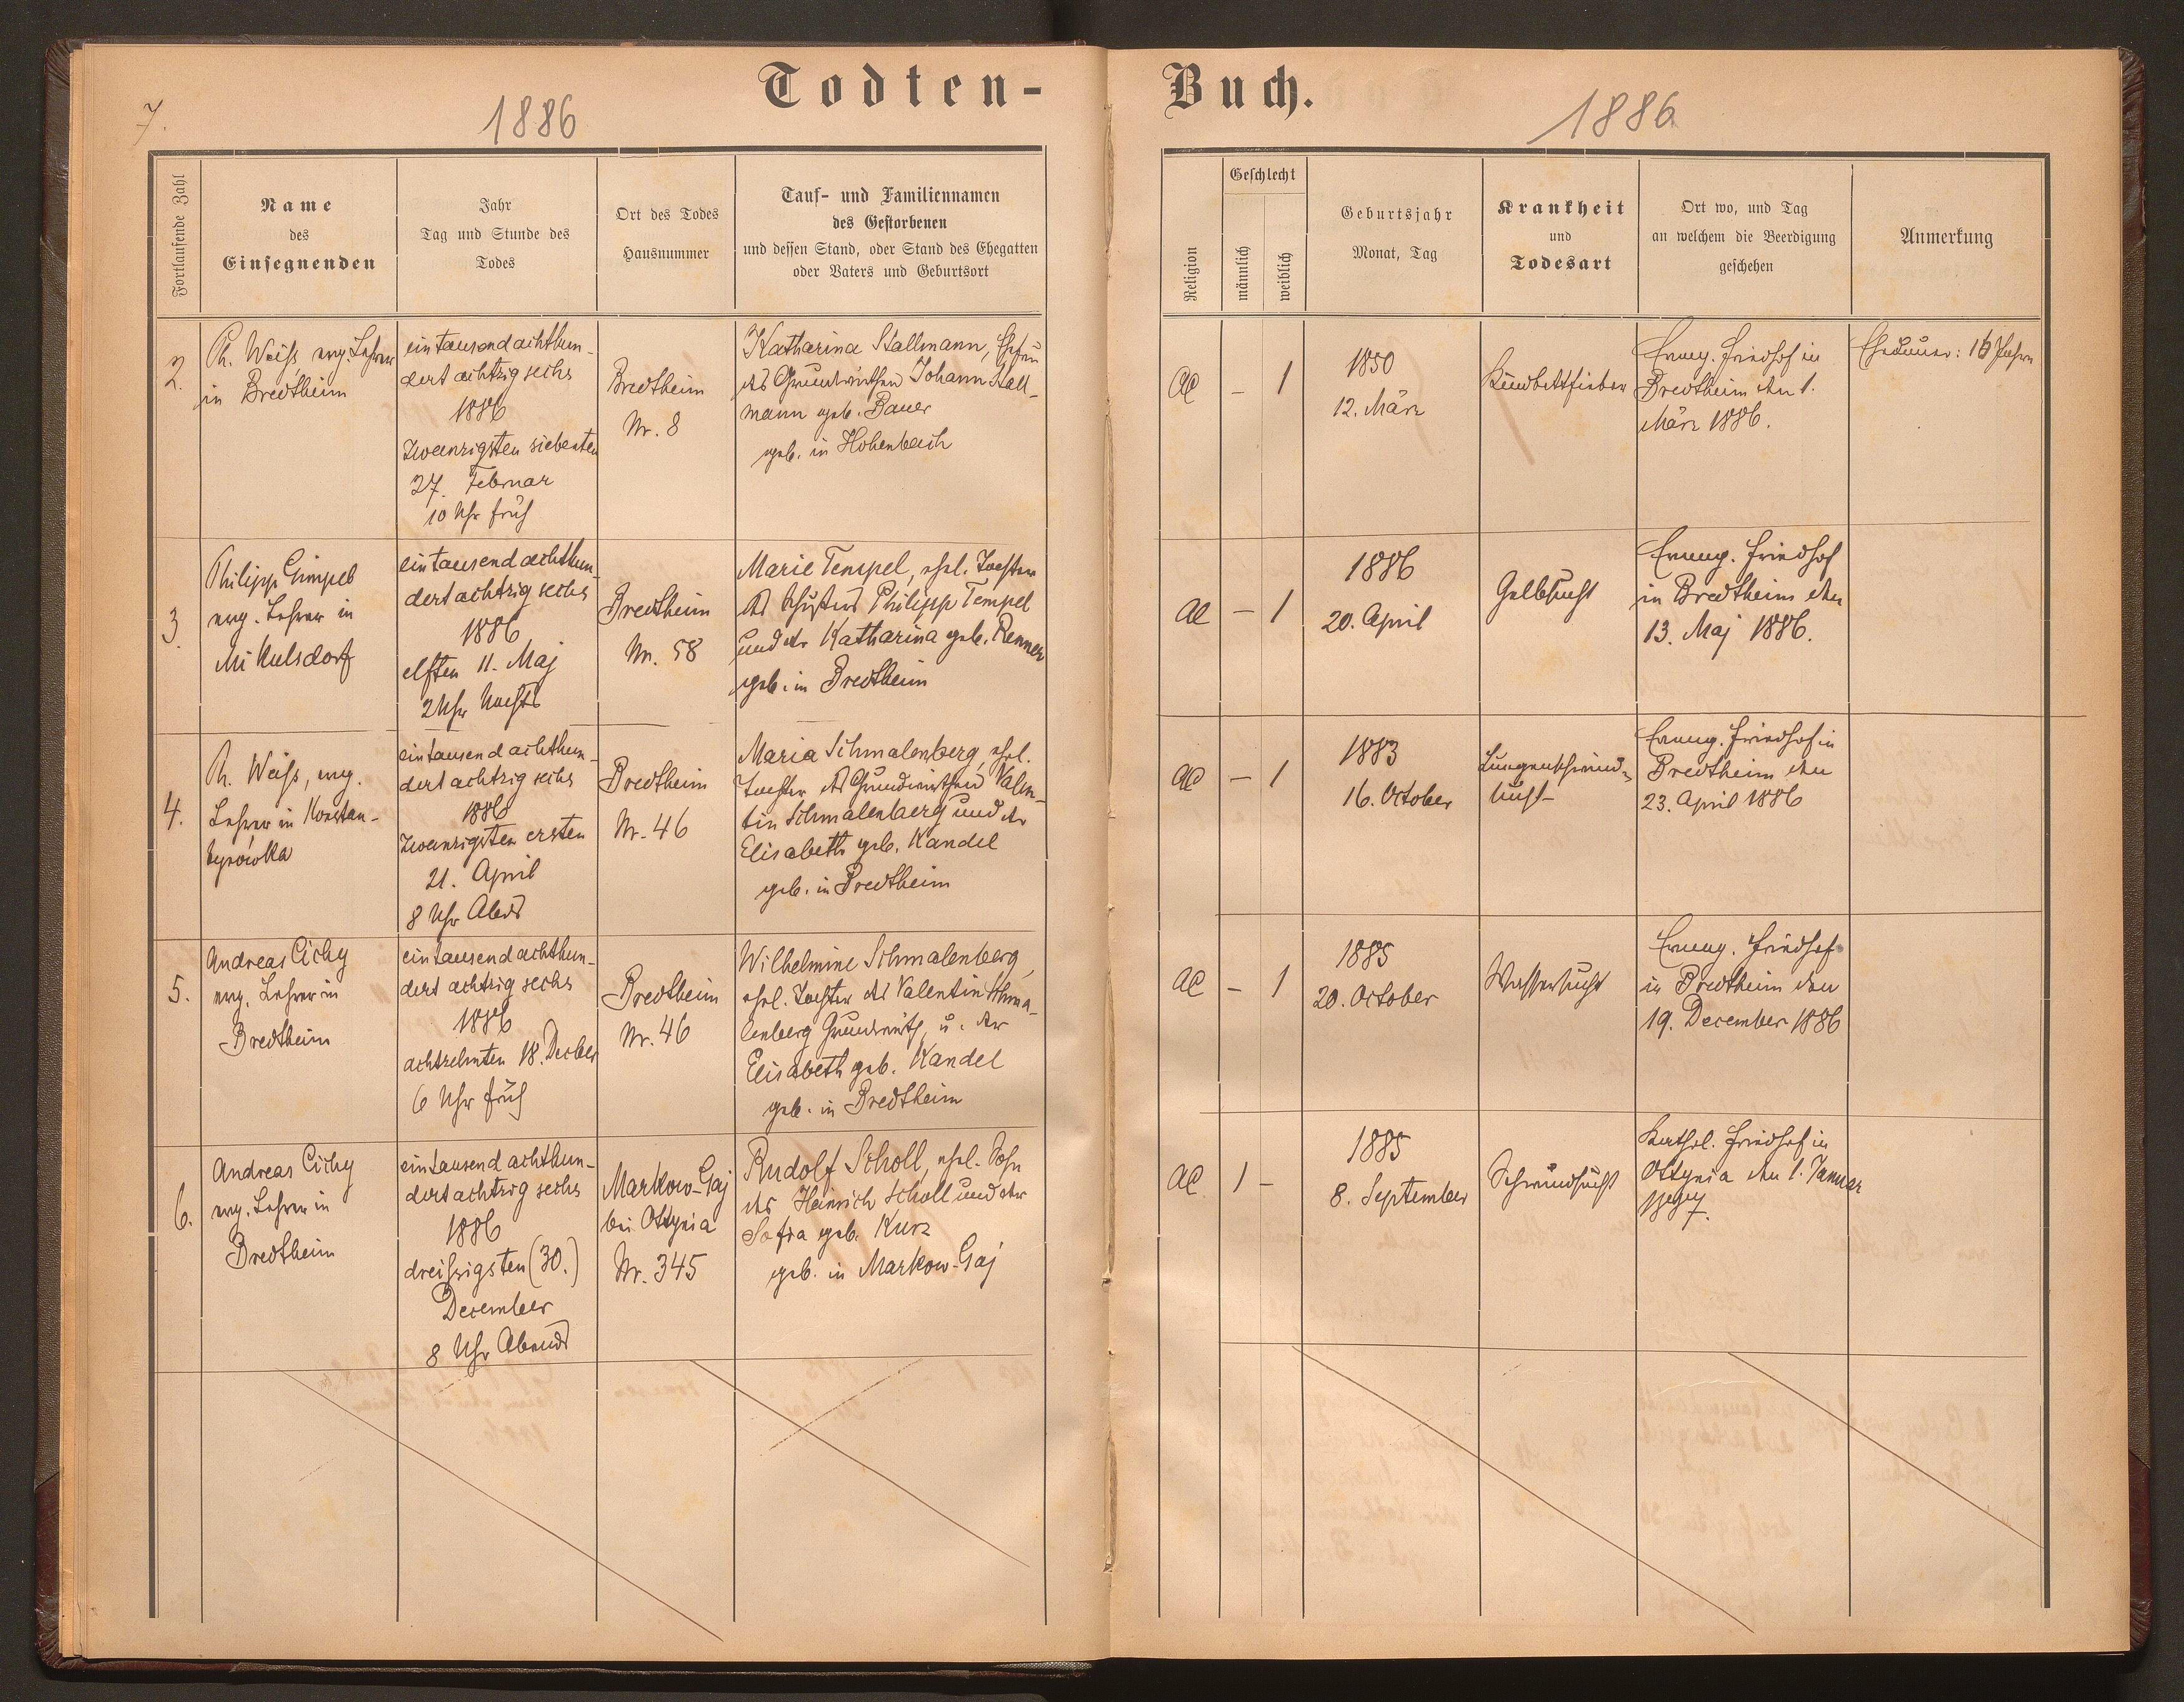 7.
1886
Todten-
Buch.
1886
Fortlaufende Zahl
Name
des
Einsegnenden
Jahr
Tag und Stunde des
Todes
Ort des Todes
Hausnummer
Tauf- und Familiennamen
des Gestorbenen
und dessen Stand, oder Stand des Ehegatten
oder Vaters und Geburtsort
Religion
Geschlecht
männlich
weiblich
Geburtsjahr
Monat, Tag
Krankheit
und
Todesart
Ort wo, und Tag
an welchem die Beerdigung
geschehen
Anmerkung
2.
Ph. Weiß, evg. Lehrer
in Bredtheim
eintausendachthun-
dert achtzig sechs
1886
Zwanzigsten siebenten
27. Februar
10 Uhr früh
Bredtheim
Nr. 8
Katharina Stallmann, Ehefrau
des Grundwirthen Johann Stall-
mann geb. Bauer
geb. in Hohenbach
AC
–
1
1850
12. März
Kindbettfieber
Evang. Friedhof in
Bredtheim den 1.
März 1886.
Ehedauer: 16 Jahre
3.
Philipp Gimpel
evg. Lehrer in
Mikulsdorf
eintausendachthun-
dert achtzig sechs
1886
elften 11. Maj
2 Uhr Nachts
Bredtheim
Nr. 58
Marie Tempel, ehel. Tochter
des Schusters Philipp Tempel
und der Katharina geb. Renner
geb. in Bredtheim
AC
–
1
1886
20. April
Gelbsucht
Evang. Friedhof
in Bredtheim den
13. Maj 1886.
4.
Ph. Weiß, evg.
Lehrer in Konstan-
tynówka
eintausendachthun-
dert achtzig sechs
1886
Zwanzigsten ersten
21. April
8 Uhr Abds
Bredtheim
Nr. 46
Maria Schmalenberg, ehel.
Tochter des Grundwirthen Valen-
tin Schmalenberg und der
Elisabeth geb. Kandel
geb. in Bredtheim
AC
–
1
1883
16. October
Lungenschwind-
sucht
Evang. Friedhof in
Bredtheim den
23. April 1886
5.
Andreas Cichy
evg. Lehrer in
Bredtheim
eintausendachthun-
dert achtzig sechs
1886
achtzehnten 18. Decber
6 Uhr früh
Bredtheim
Nr. 46
Wilhelmine Schmalenberg,
ehel. Tochter des Valentin Schma-
lenberg Grundwirth, u. der
Elisabeth geb. Kandel
geb. in Bredtheim
AC
–
1
1885
20. October
Wassersucht
Evang. Friedhof
in Bredtheim den
19. December 1886
6.
Andreas Cichy
evg. Lehrer in
Bredtheim
eintausendachthun-
dert achtzig sechs
1886
dreißigsten (30.)
December
8 Uhr Abends
Markow-Gaj
bei Ottynia
Nr. 345
Rudolf Scholl, ehel. Sohn
des Heinrich Scholl und der
Sofia geb. Kurz
geb. in Markow-Gaj
AC
1
–
1885
8. September
Schwindsucht
Kathol. Friedhof in
Ottynia den 1. Januar
1887.